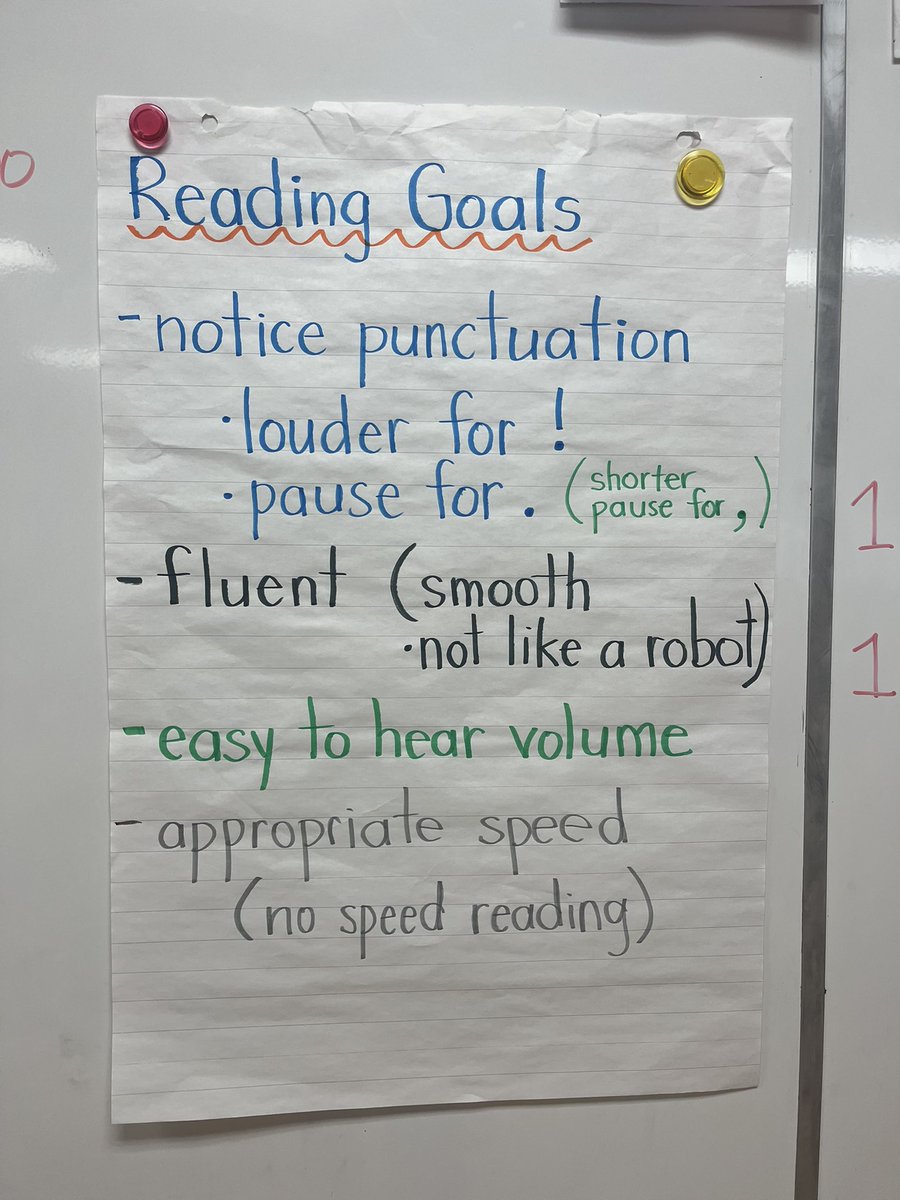 o
Reading Goals
- notice punctuation
· louder for !
· pause for . (shorter
pause for , )
- fluent (smooth
· not like a robot)
- easy to hear volume
- appropriate speed
(no speed reading)
1
1